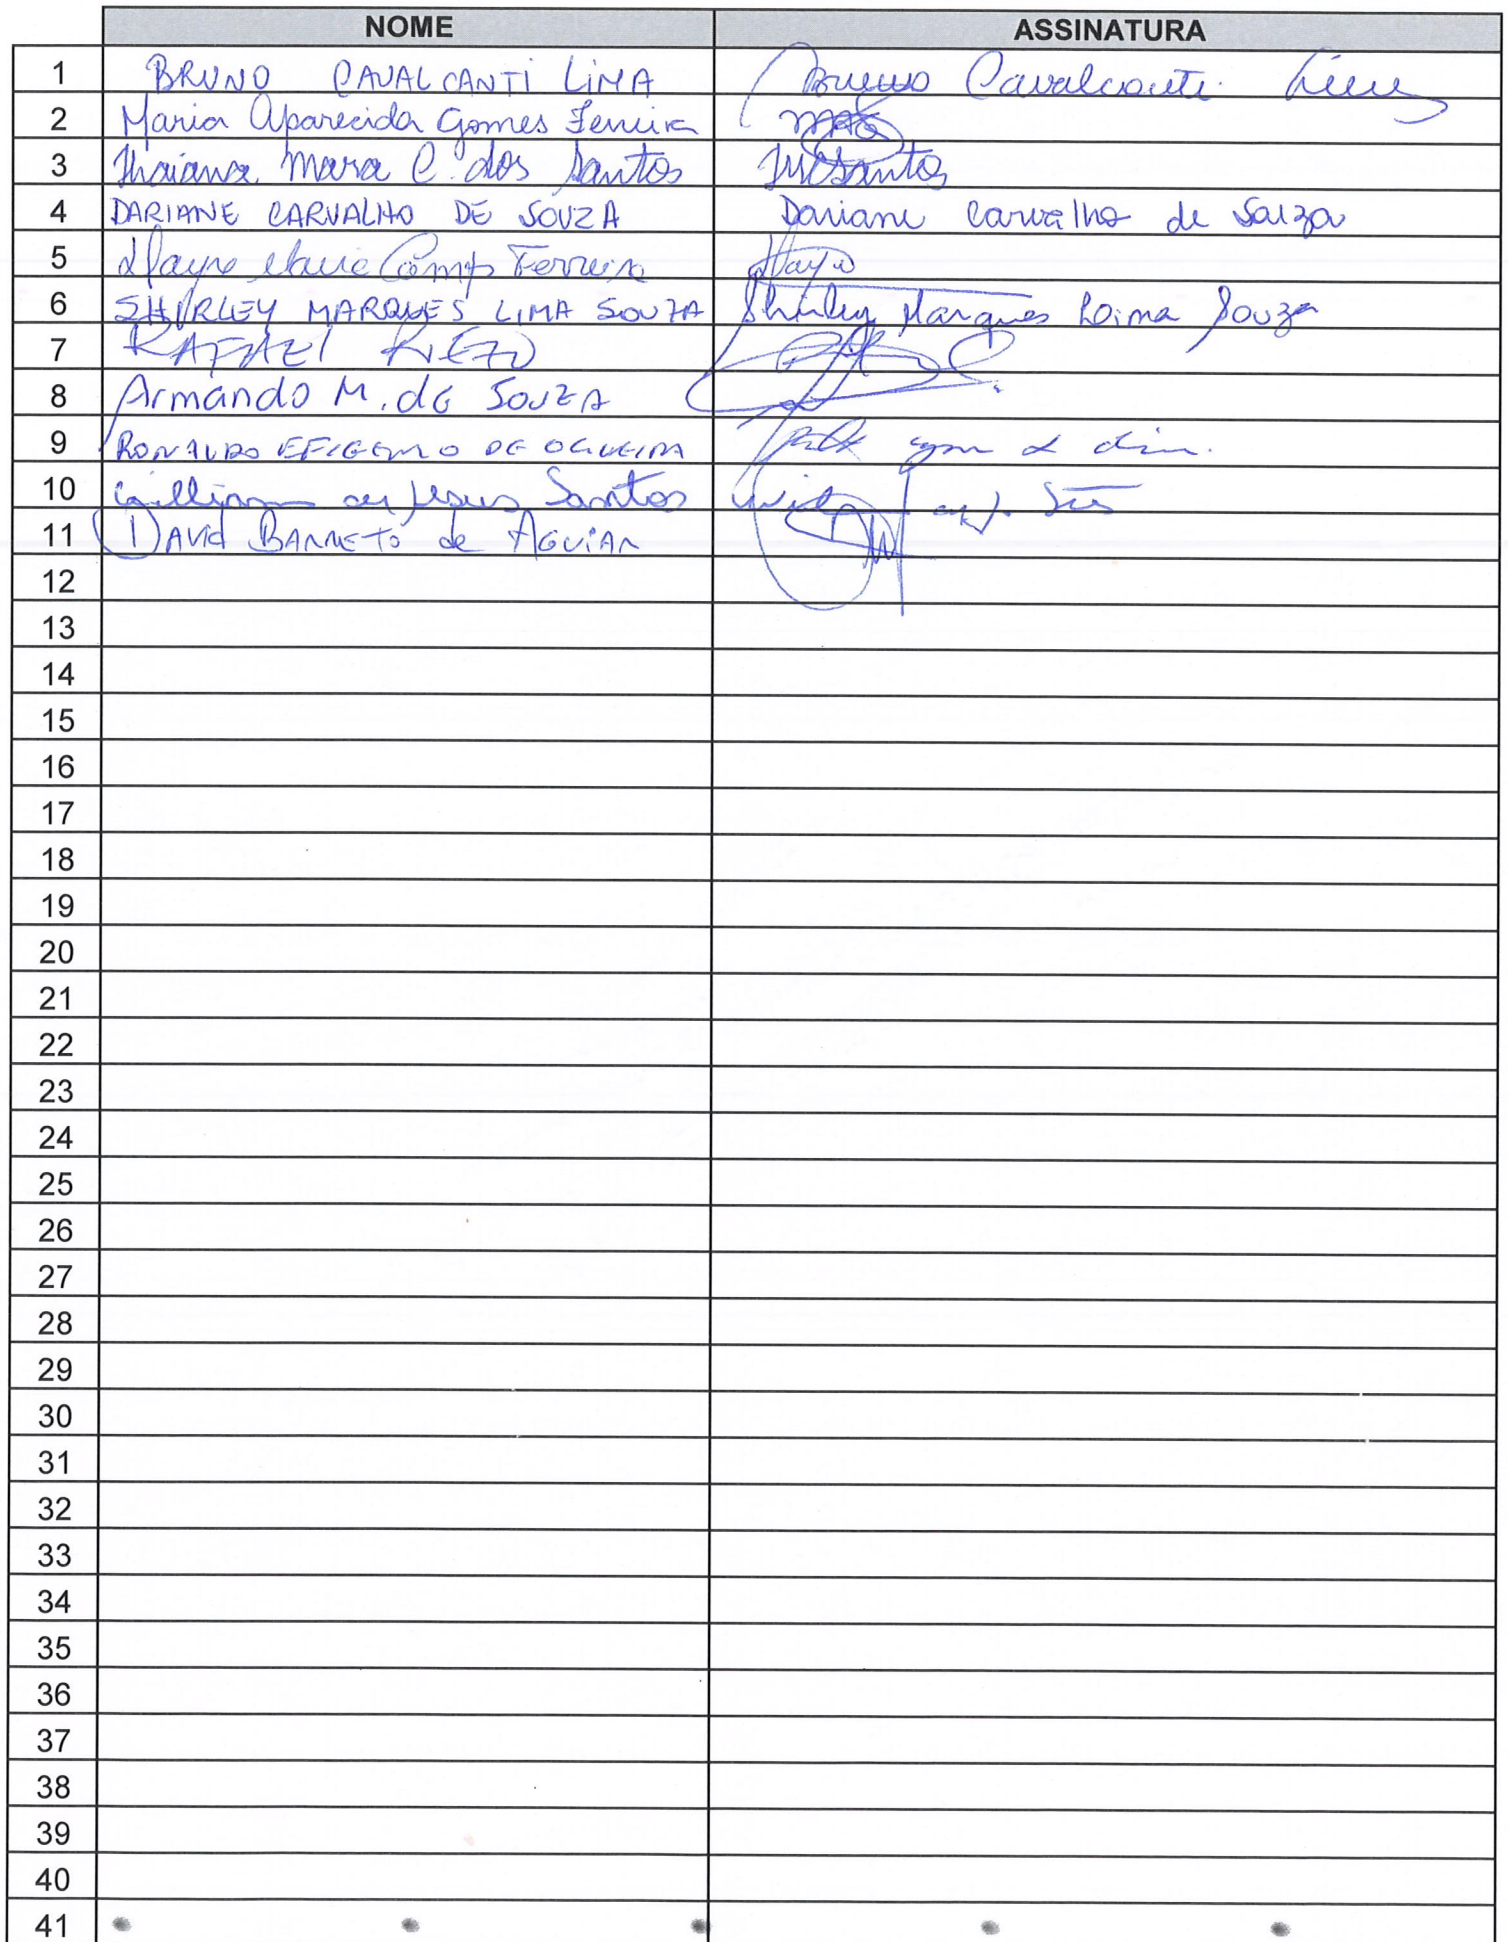 NOME ASSINATURA
1 BRUNO CAVALCANTI LIMA Bruno Cavalcanti Lima
2 Maria Aparecida Gomes Ferreira MAG
3 Thaiana Mara C. dos Santos TMCSantos
4 DARIANE CARVALHO DE SOUZA Dariane Carvalho de Souza
5 Ferreira
6 SHIRLEY MARQUES LIMA SOUZA Shirley Marques Lima Souza
7 RAFAEL
8 Armando M. de SOUZA
9 RONALDO EFIGENIO DE OLIVEIRA
10 Jesus Santos
11 DAVID BARRETO de AGUIAR
12
13
14
15
16
17
18
19
20
21
22
23
24
25
26
27
28
29
30
31
32
33
34
35
36
37
38
39
40
41